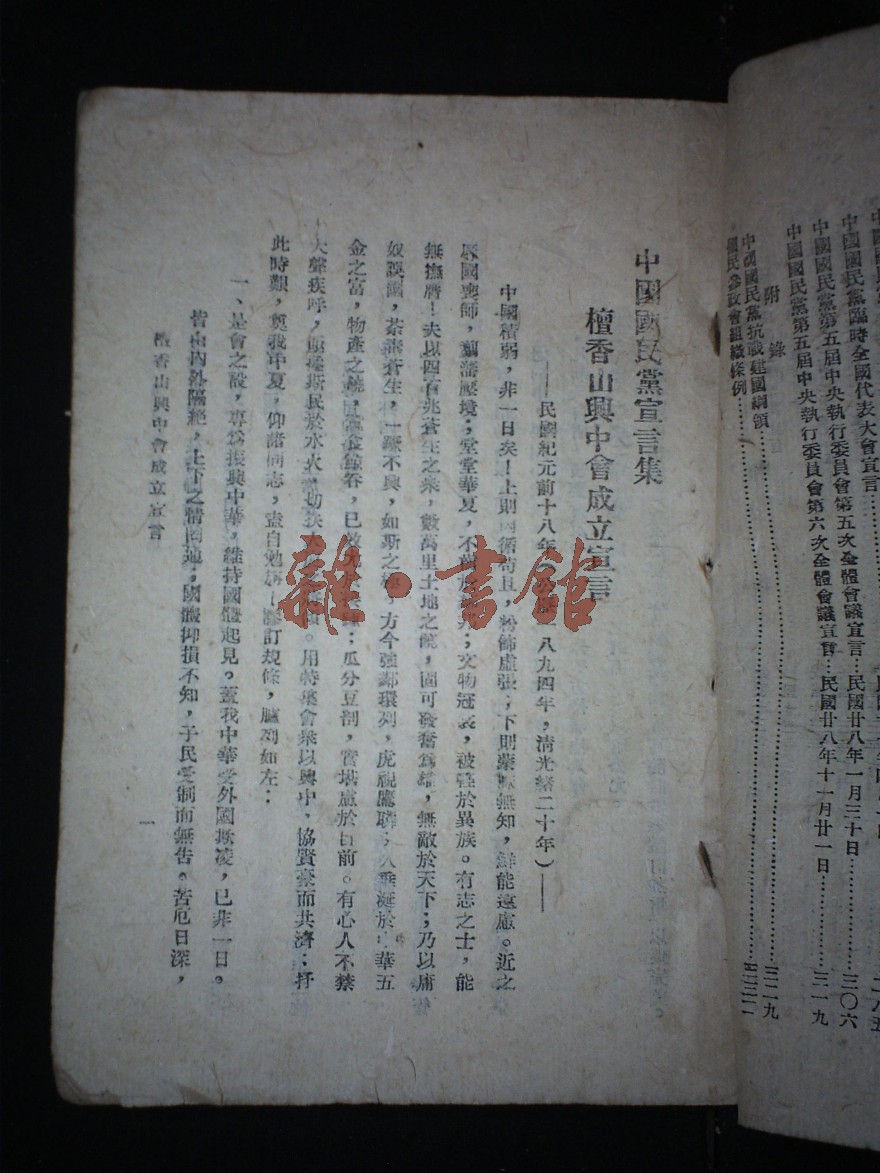 中國國民黨臨時全國代表大會宣言
中國國民黨第五屆中央執行委員會第五次全體會議宣言…民國廿八年一月三十日………三〇六
中國國民黨第五屆中央執行委員會第六次全體會議宣言…民國廿八年十一月廿一日………三一九
附錄
中國國民黨抗戰建國綱領………三二九
國民參政會組織條例………
中國國民黨宣言集
檀香山興中會成立宣言
——民國紀元前十八年(八九四年,清光緒二十年)——
中國積弱,非一日矣!上則因循苟且,粉飾虛張;下則蒙昧無知,鮮能遠慮。近之
辱國喪師,翦藩壓境;堂堂華夏,不齒於鄰邦;文物冠裳,被輕於異族。有志之士,能
無撫膺!夫以四百兆蒼生之衆,數萬里土地之饒,固可發奮爲雄,無敵於天下;乃以庸
奴誤國,荼毒蒼生,一蹶不興,如斯之極。方今強鄰環列,虎視鷹瞵,久垂涎於中華五
金之富,物產之饒,蠶食鯨吞,已效尤於接踵;瓜分豆剖,實堪慮於目前。有心人不禁
大聲疾呼,亟拯斯民於水火,切扶大廈之將傾。用特集會衆以興中,協賢豪而共濟;抒
此時艱,奠我中夏,仰諸同志,盍自勉旃!謹訂規條,臚列如左:
一、是會之設,專爲振興中華,維持國體起見。蓋我中華受外國欺凌,已非一日。
皆由內外隔絕,上下之情罔通,國體抑損不知,子民受制而無告。苦厄日深,
檀香山興中會成立宣言
一
雜·書館